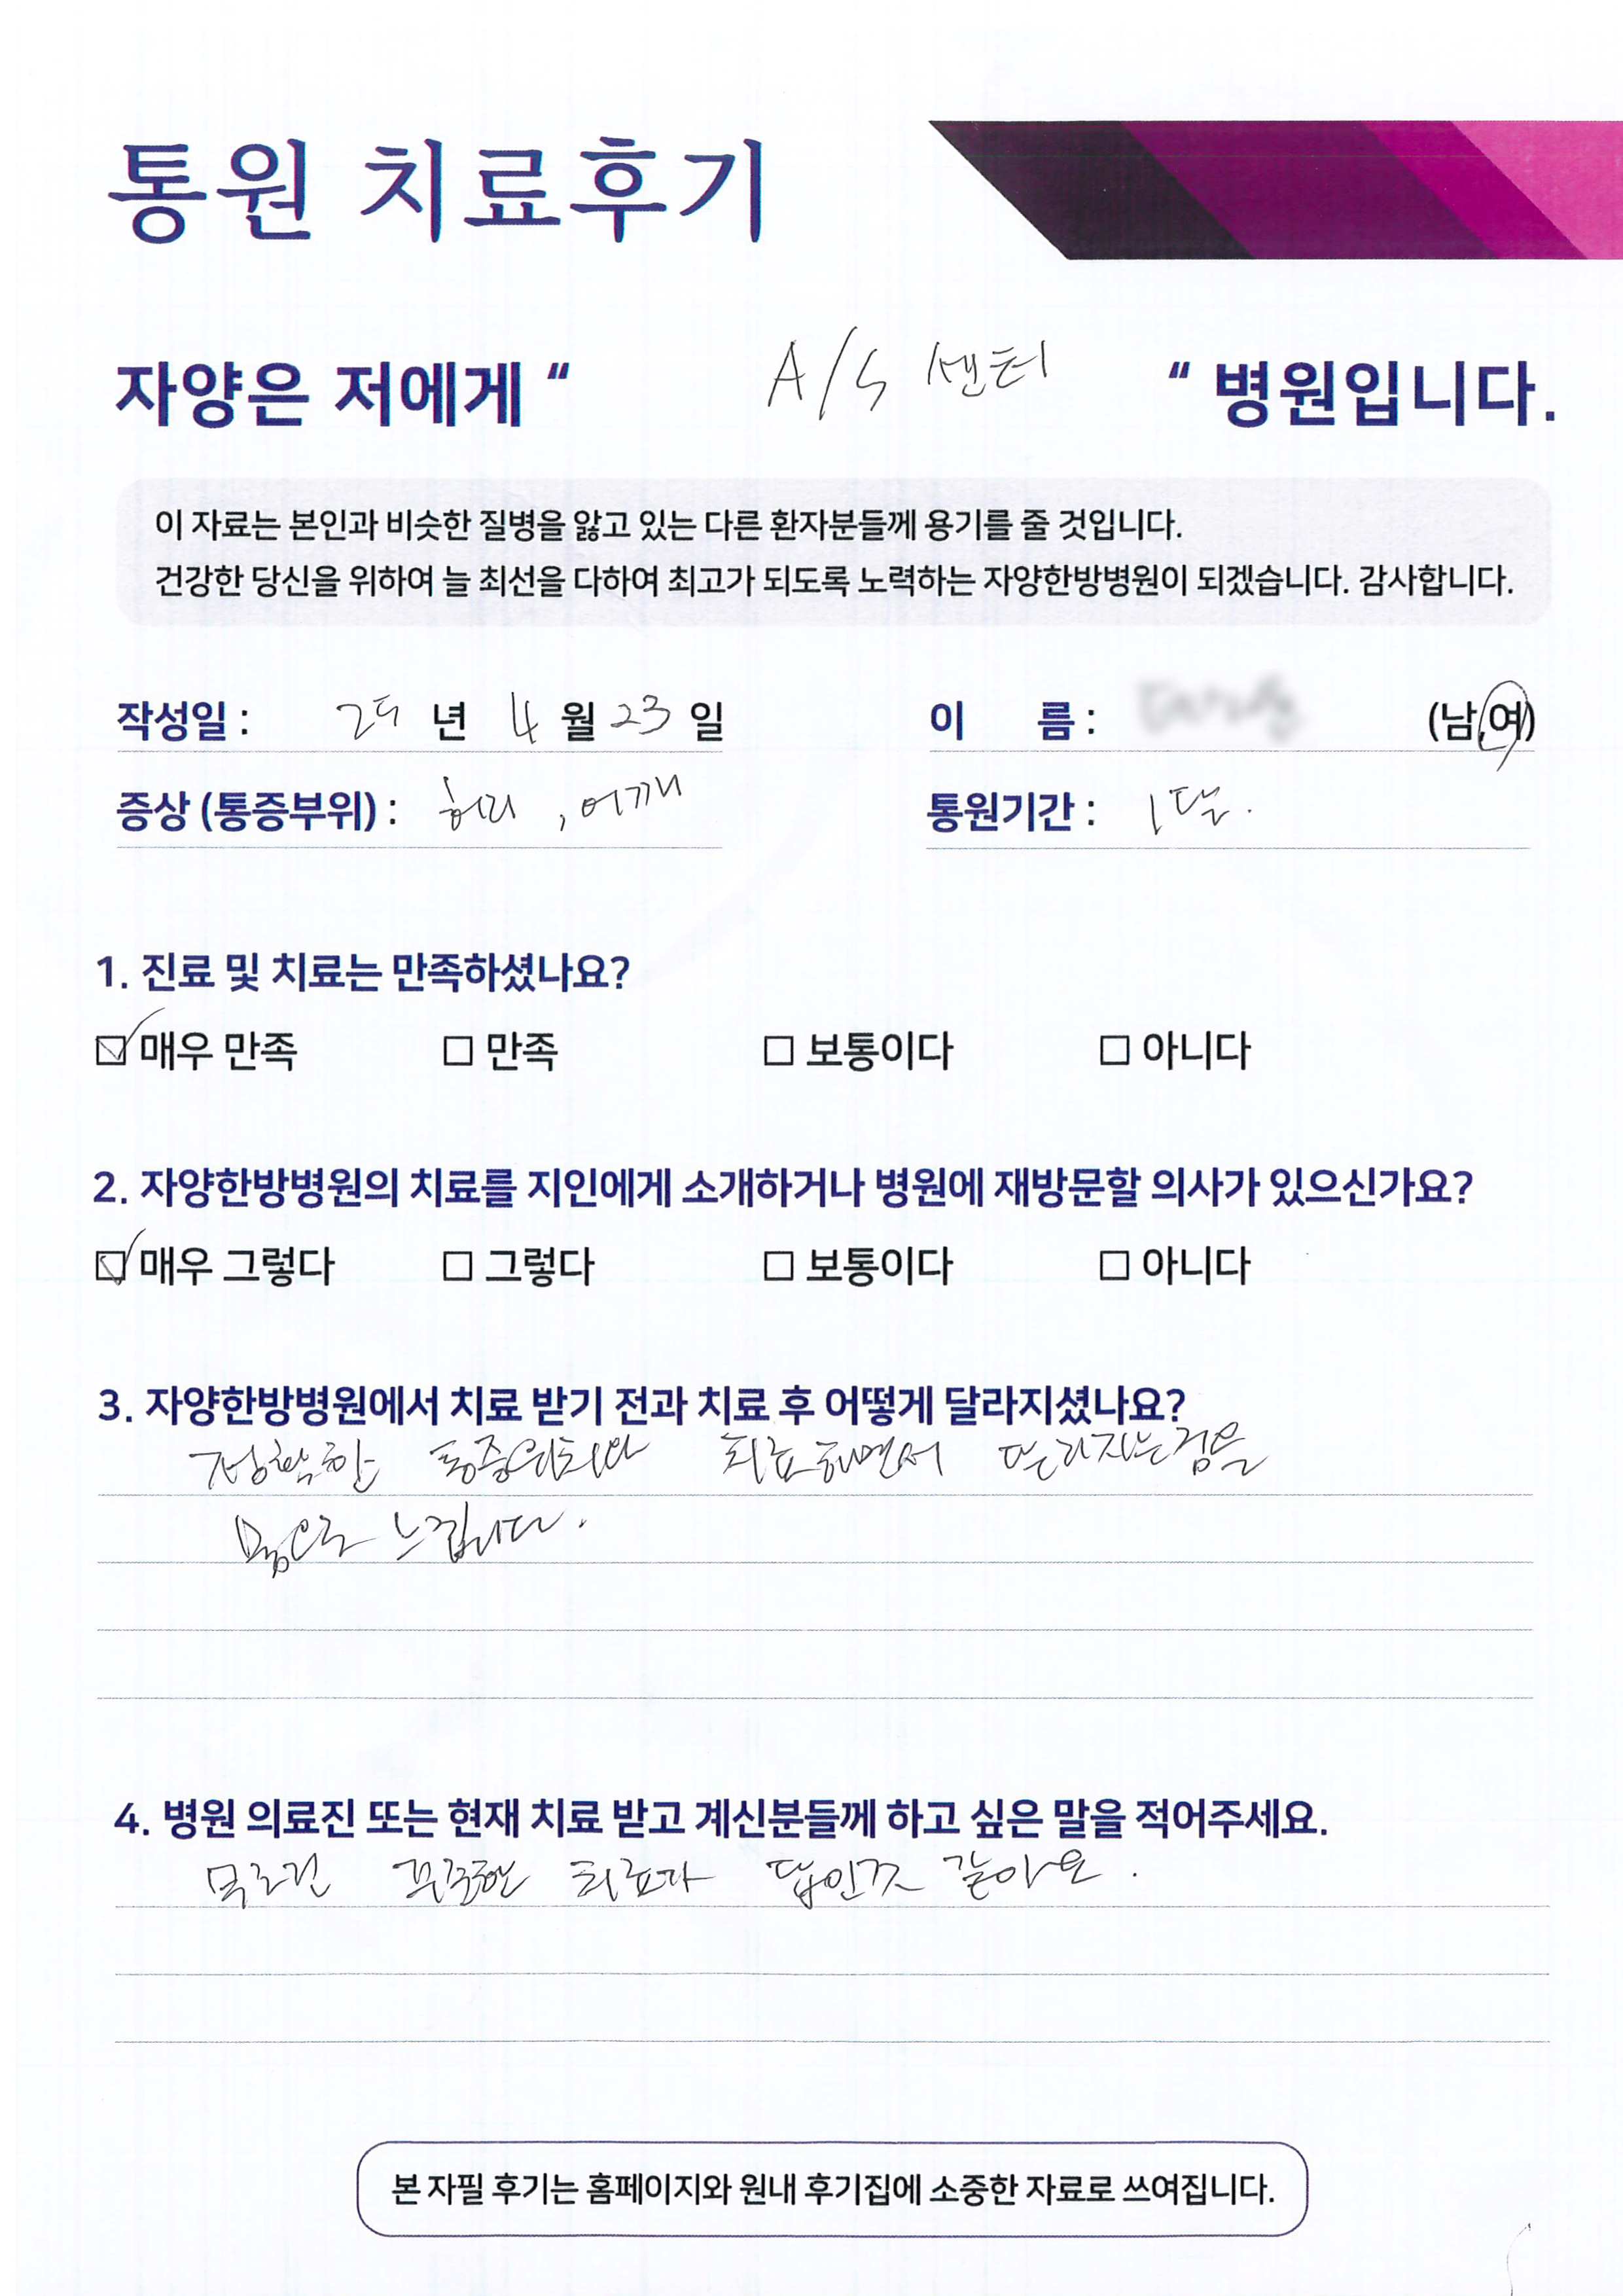 통원 치료후기
자양은 저에게 “ A/S 센터 “ 병원입니다.
이 자료는 본인과 비슷한 질병을 앓고 있는 다른 환자분들께 용기를 줄 것입니다.
건강한 당신을 위하여 늘 최선을 다하여 최고가 되도록 노력하는 자양한방병원이 되겠습니다. 감사합니다.
작성일 : 25 년 4 월 23 일 이 름 : (남,여)
증상 (통증부위) : 허리 , 어깨 통원기간 : 1달.
1. 진료 및 치료는 만족하셨나요?
☑ 매우 만족 □ 만족 □ 보통이다 □ 아니다
2. 자양한방병원의 치료를 지인에게 소개하거나 병원에 재방문할 의사가 있으신가요?
☑ 매우 그렇다 □ 그렇다 □ 보통이다 □ 아니다
3. 자양한방병원에서 치료 받기 전과 치료 후 어떻게 달라지셨나요?
정확한 통증위치와 치료하면서 달라지는점을
몸으로 느낍니다.
4. 병원 의료진 또는 현재 치료 받고 계신분들께 하고 싶은 말을 적어주세요.
무조건 꾸준한 치료가 답인것 같아요.
본 자필 후기는 홈페이지와 원내 후기집에 소중한 자료로 쓰여집니다.